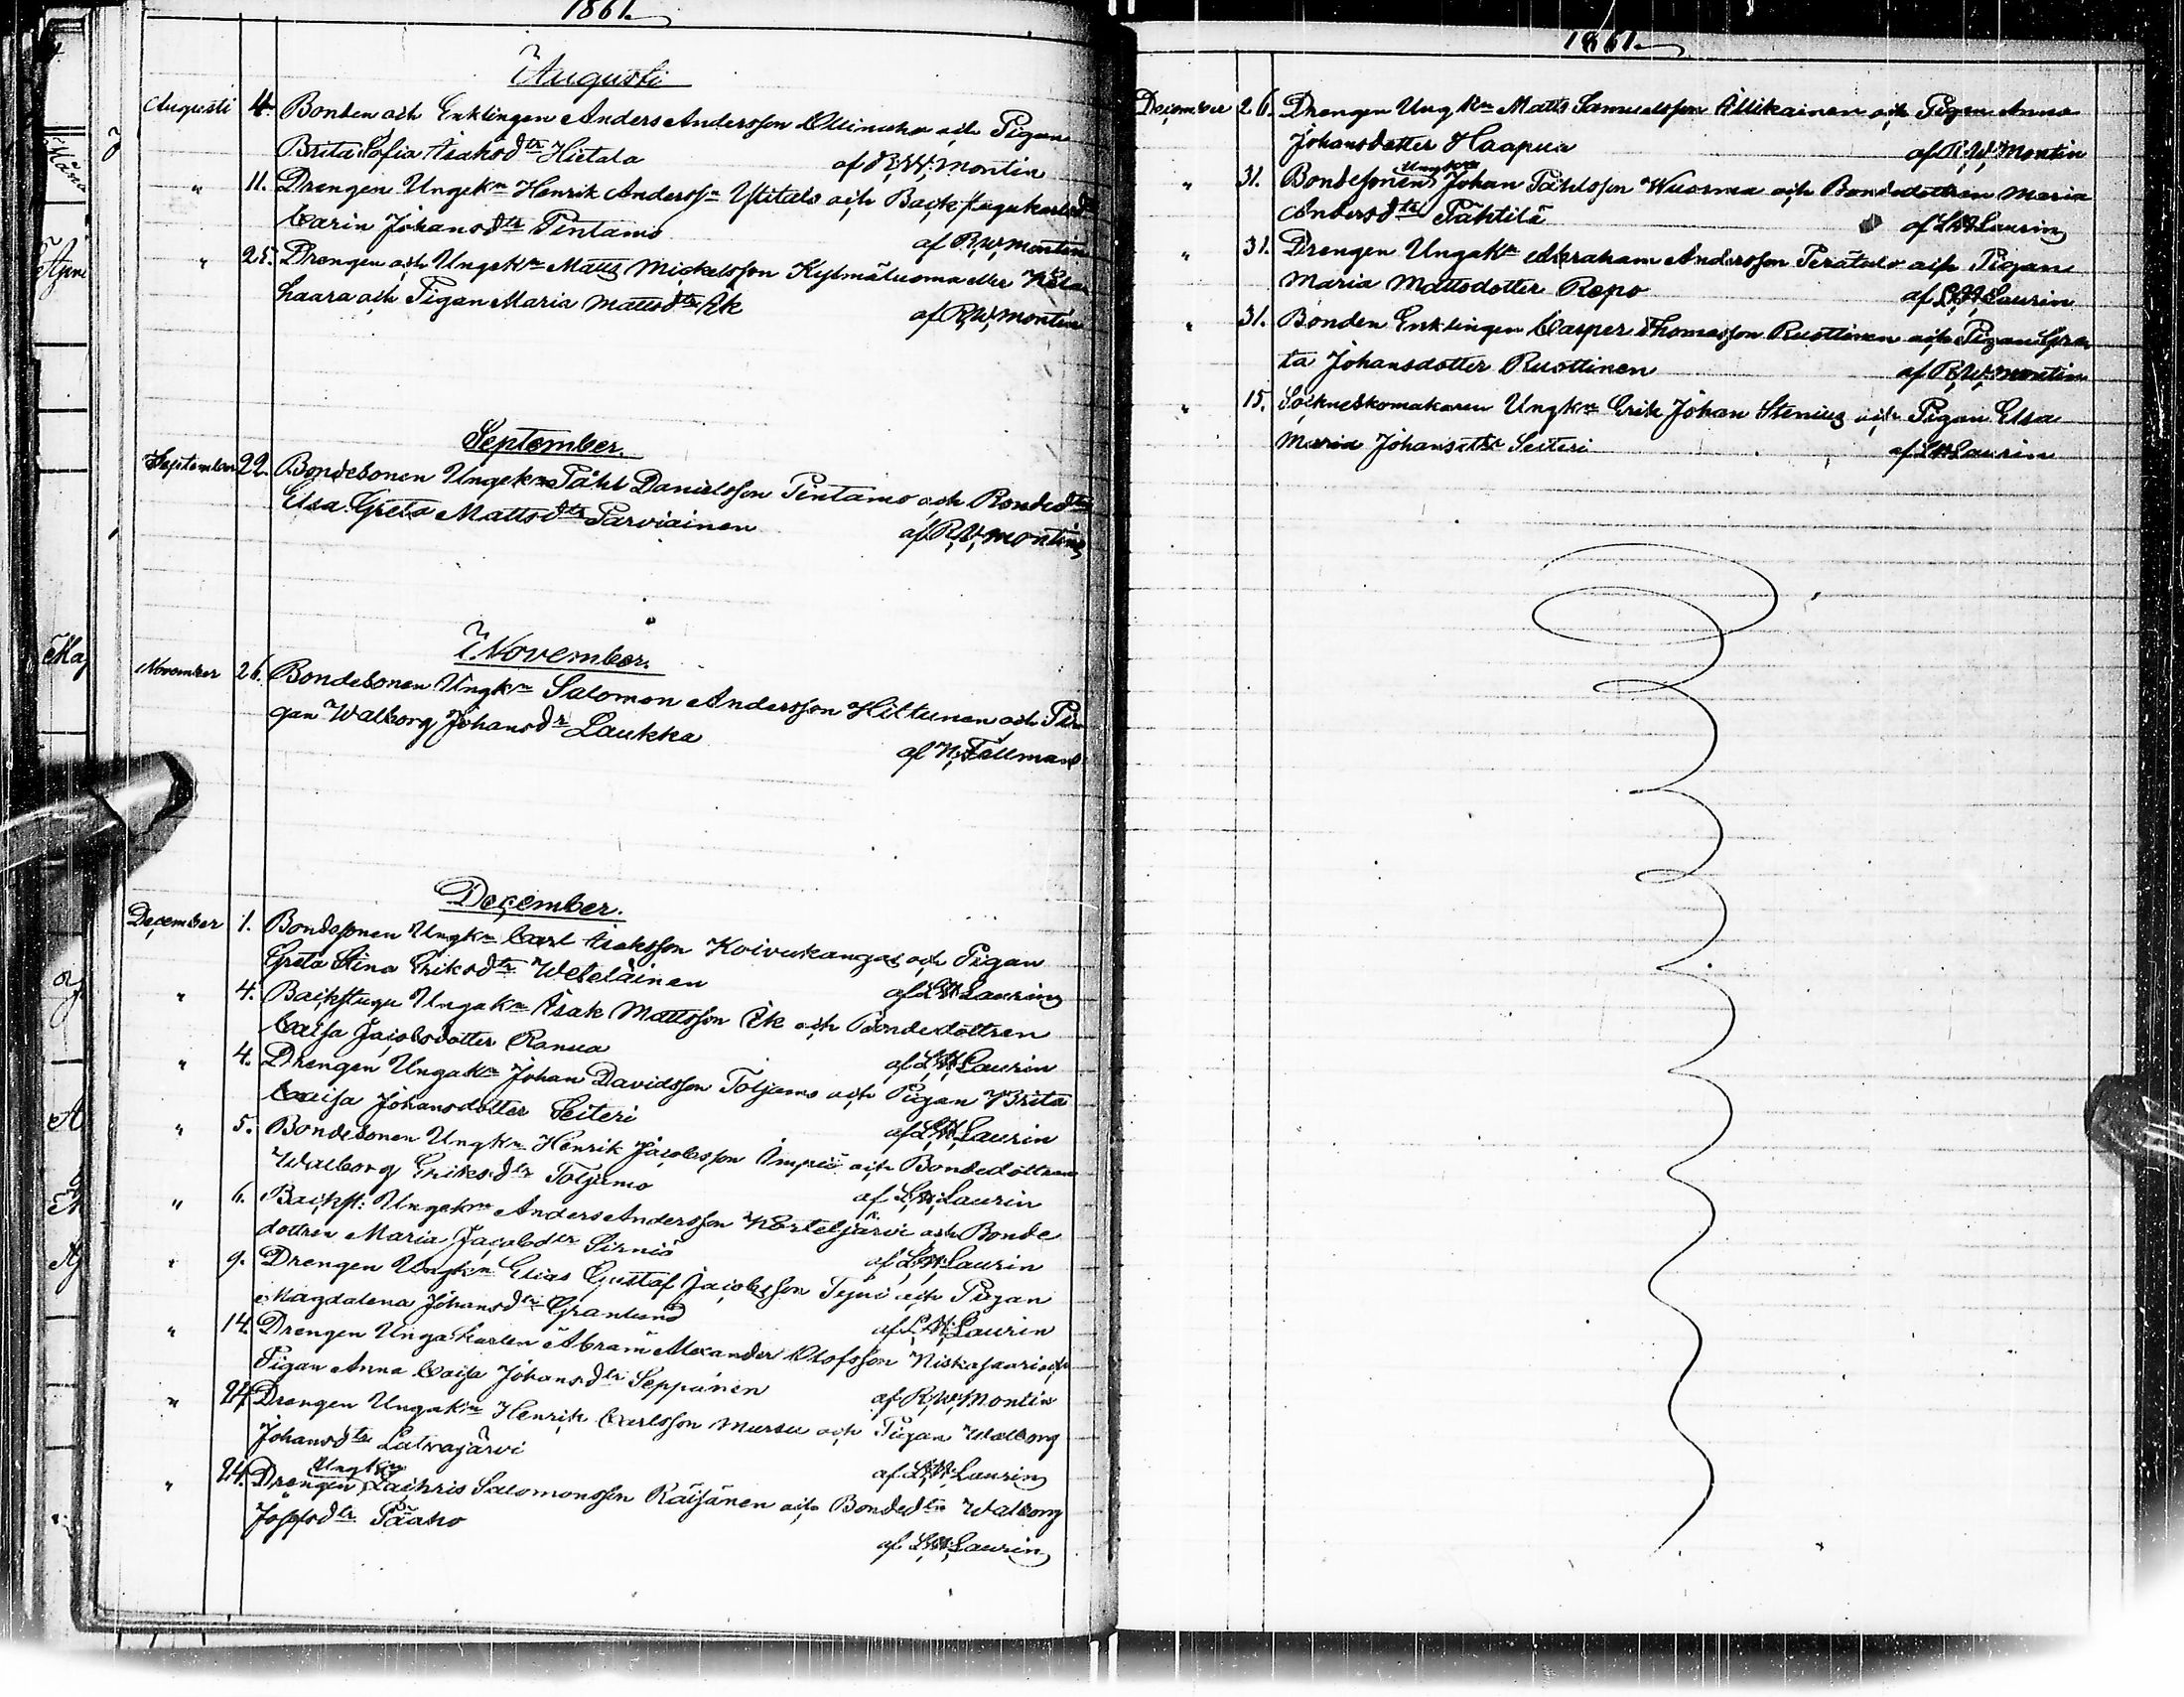 1861.
Augusti
Augusti 4. Bonden och Enklingen Anders Andersson Ollinaho och Pigan
Brita Sofia Isaksdtr Hietala af R.W. Montin
" 11. Drengen Ungekn Henrik Anderssn Ylitalo och Backstugukarlsdtr
Carin Johansdtr Pintamo af R.W. Montin
" 25. Drengen och Ungekn Matts Mickelsson Kylmäluoma eller
haara och Pigan Maria Mattsdtr Ik af R.W. Montin
September.
September 22. Bondesonen Ungekn Påhl Danielsson Pintamo och Bondedtr
Elsa Greta Mattsdtr Parviainen af R.W. Montin
November.
November 26. Bondesonen Ungkn Salomon Andersson Hiltunen och Pi
gan Walborg Johansdr Laukka af N. Fellman
December.
December 1. Bondesonen Ungkn Carl Isaksson Koivukangas och Pigan
Greta Stina Eriksdtr Weteläinen af L.H. Laurin
" 4. Backstugu Ungakn Isak Mattsson Ik och Bondedottren
Caisa Jacobsdotter Ranua af L.H. Laurin
" 4. Drengen Ungakn Johan Davidsson Toljamo och Pigan Brita
Caisa Johansdotter Seiteri af L.H. Laurin
" 5. Bondesonen Ungkn Henrik Jacobsson Impiö och Bondedottren
Walborg Eriksdtr Toljamo af L.H. Laurin
" 6. Backst: Ungekn Anders Andersson Korteljärvi och Bonde
dottren Maria Jacobsdtr Sirniö af L.H. Laurin
" 9. Drengen Ungkn Elias Gustaf Jacobsson Tyni och Pigan
Magdalena Johansdtr Granlund af L.H. Laurin
" 14. Drengen Ungakarlen Abram Alexander Olofsson Niskasaari och
Pigan Anna Caisa Johansdtr Seppänen af R.W. Montin
" 24. Drengen Ungakn Henrik Carlsson Mursu och Pigan Walborg
Johansdtr Latvajärvi af L.H. Laurin
Ungkn
" 24. Drengen Zachris Salomonsson Räisänen och Bondedtr Walborg
Josefsdtr Pääaho af L.H. Laurin
1861.
December 26. Drengen Ungkn Matts Samuelsson Illikainen och Pigan Anna
Johansdotter Haapua af R.W. Montin
Ungkn
" 31. Bondesonen Johan Påhlsson Wuorma och Bondedottren Maria
Andersdtr Pähtilä af L.H. Laurin
" 31. Drengen Ungakn Abraham Andersson Perätalo och Pigan
Maria Mattsdotter Repo af L.H. Laurin
" 31. Bonden Enklingen Casper Thomasson Ruottinen och Pigan Gre
ta Johansdotter Ruottinen af R.W. Montin
" 15. Sockneskomakaren Ungkn Erik Johan Stenius och Pigan Elsa
Maria Johansdtr Seiteri af L.H. Laurin